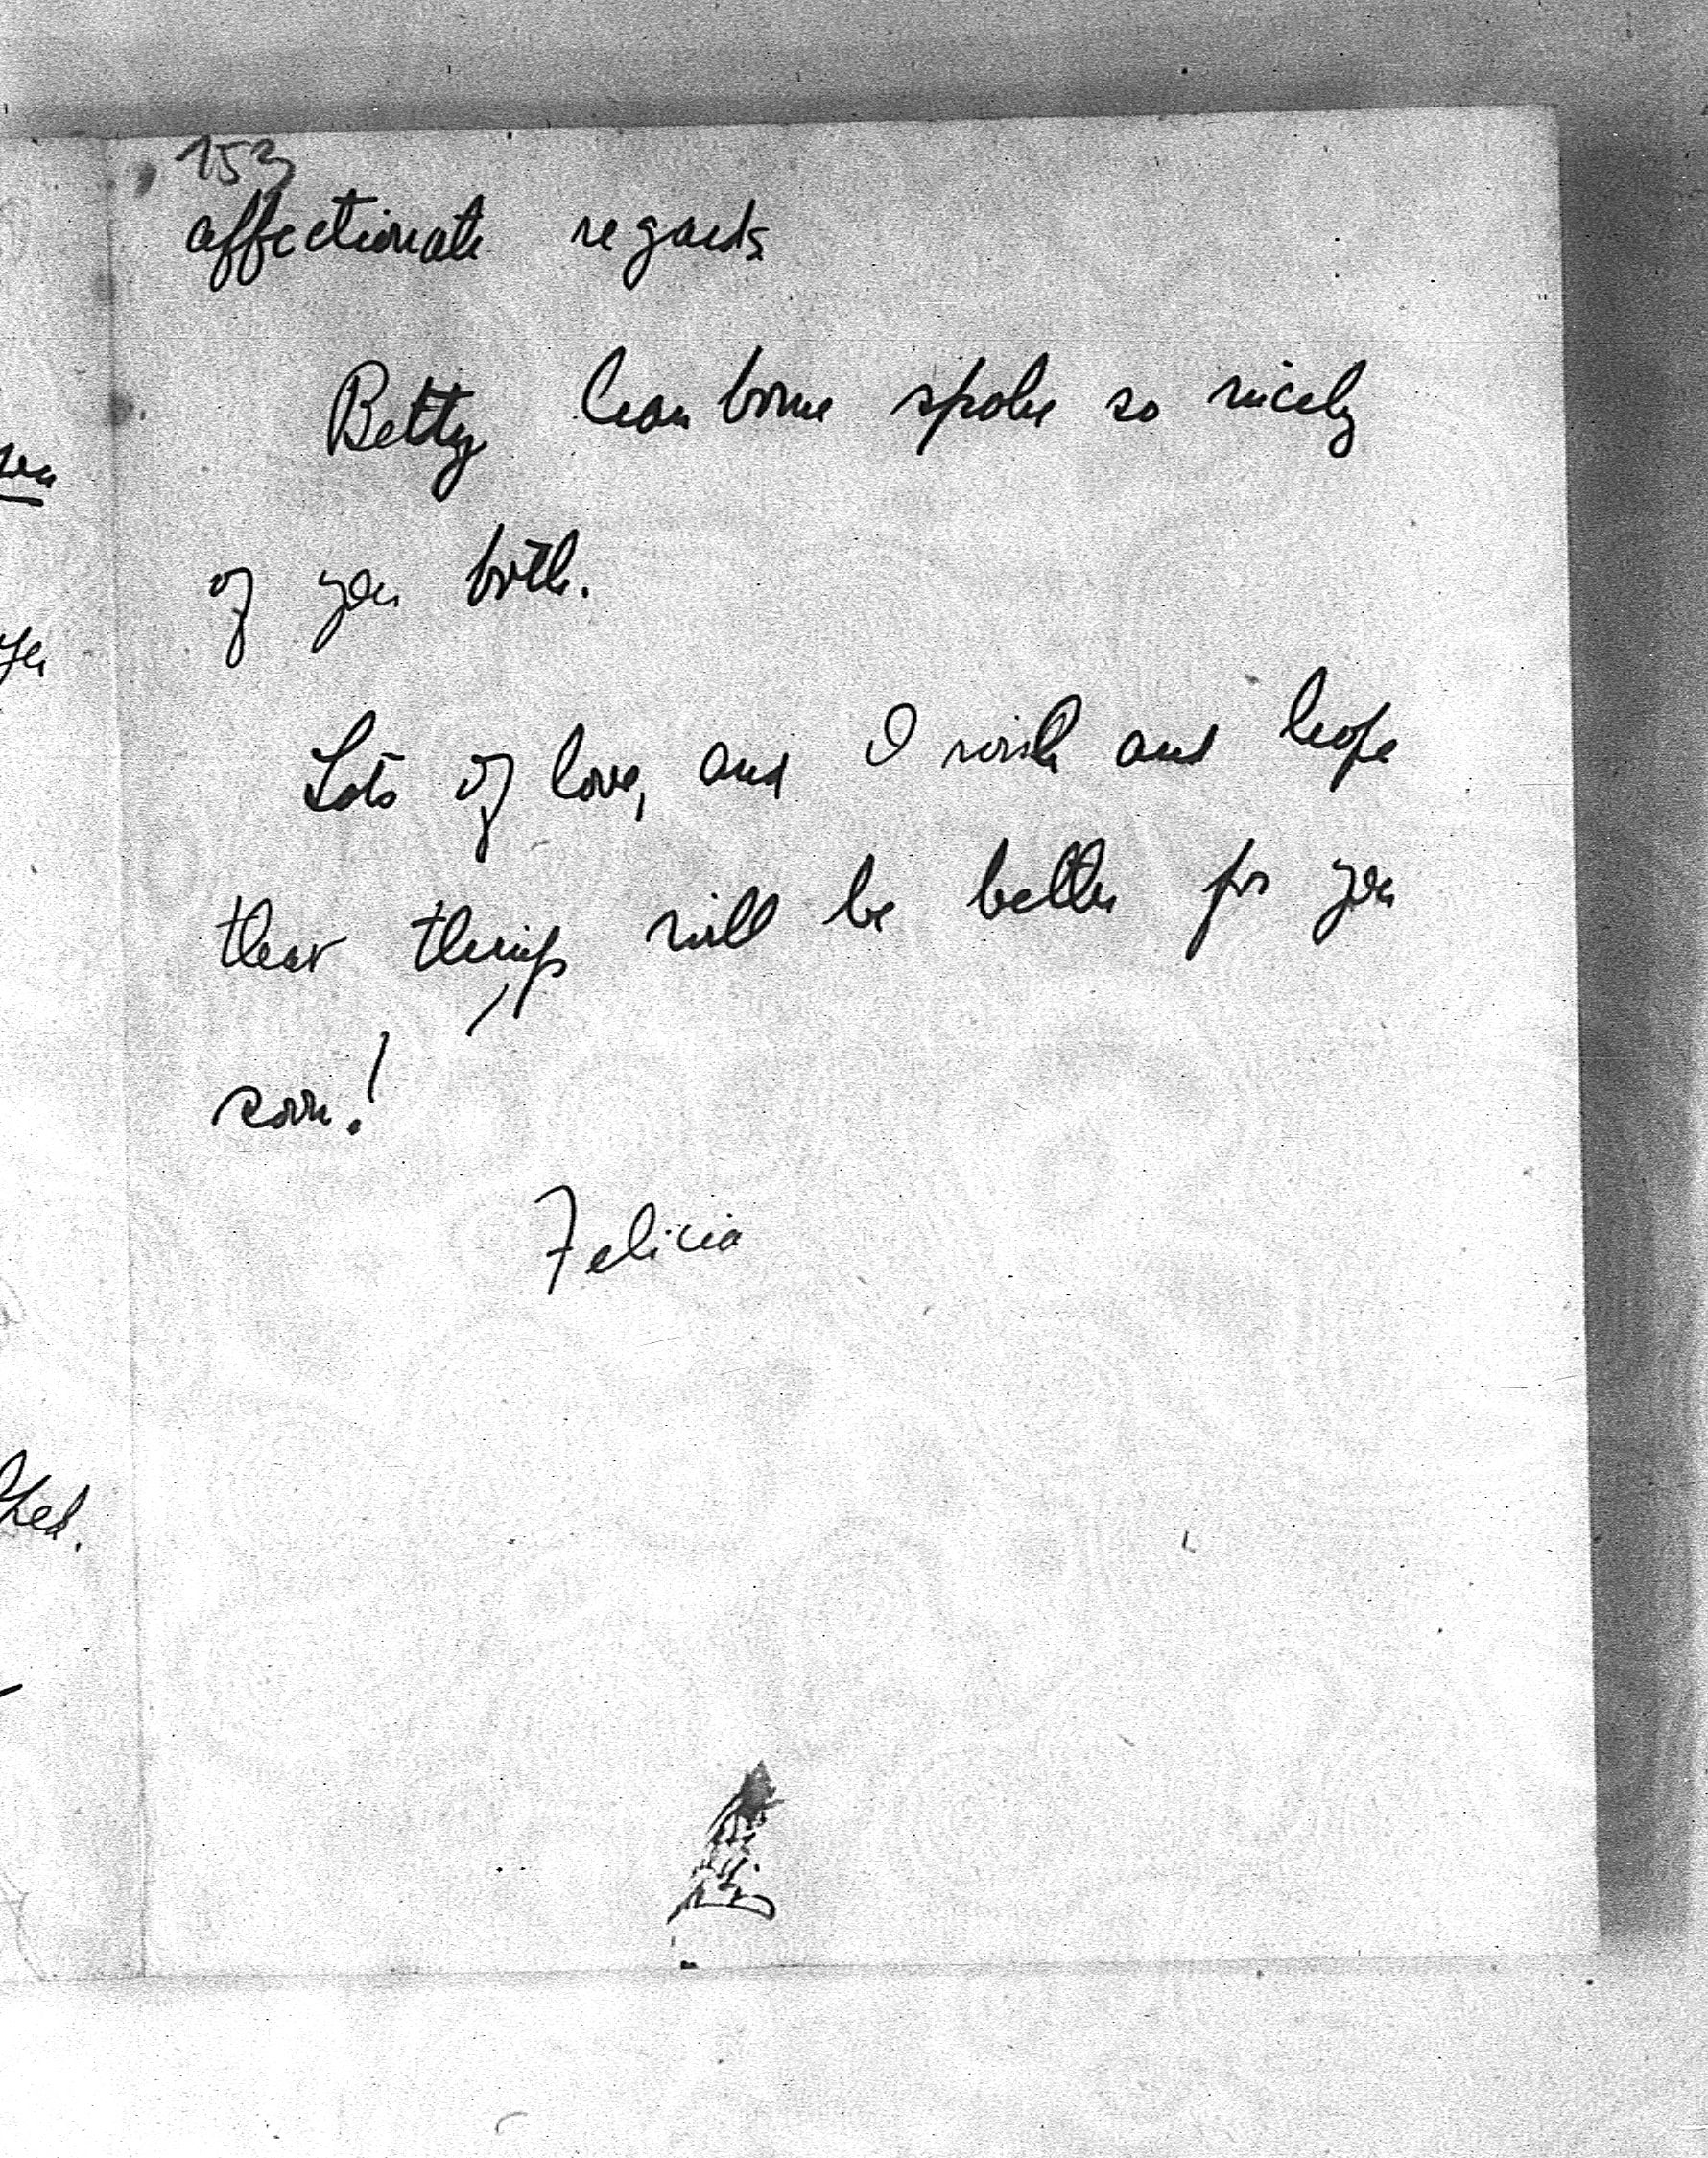 153
affectionate regards
Betty spoke so nicely
of you both.
Lots of love, and I wish and hope
that things will be better for you
soon!
Felicia